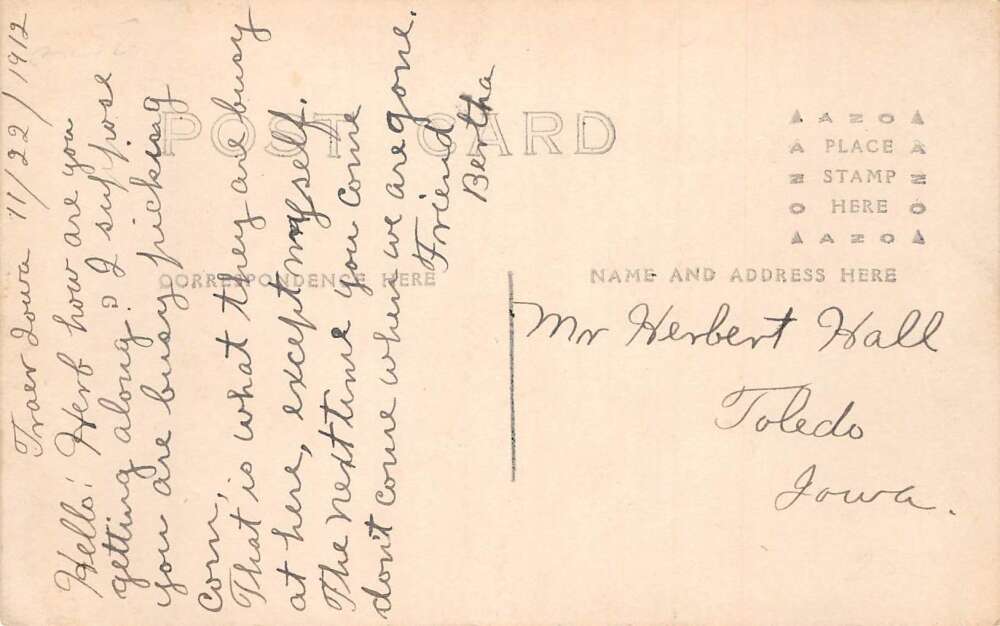 Traer Iowa 11/22/1912
Hello! Herb how are you
getting along? I suppose
you are busy picking
corn,
That is what they are busy
at here, except myself.
The next time you come
don't come when we are gone.
Friend
Bertha
POST CARD
CORRESPONDENCE HERE
NAME AND ADDRESS HERE
AZO
PLACE
STAMP
HERE
AZO
Mr Herbert Hall
Toledo
Iowa.